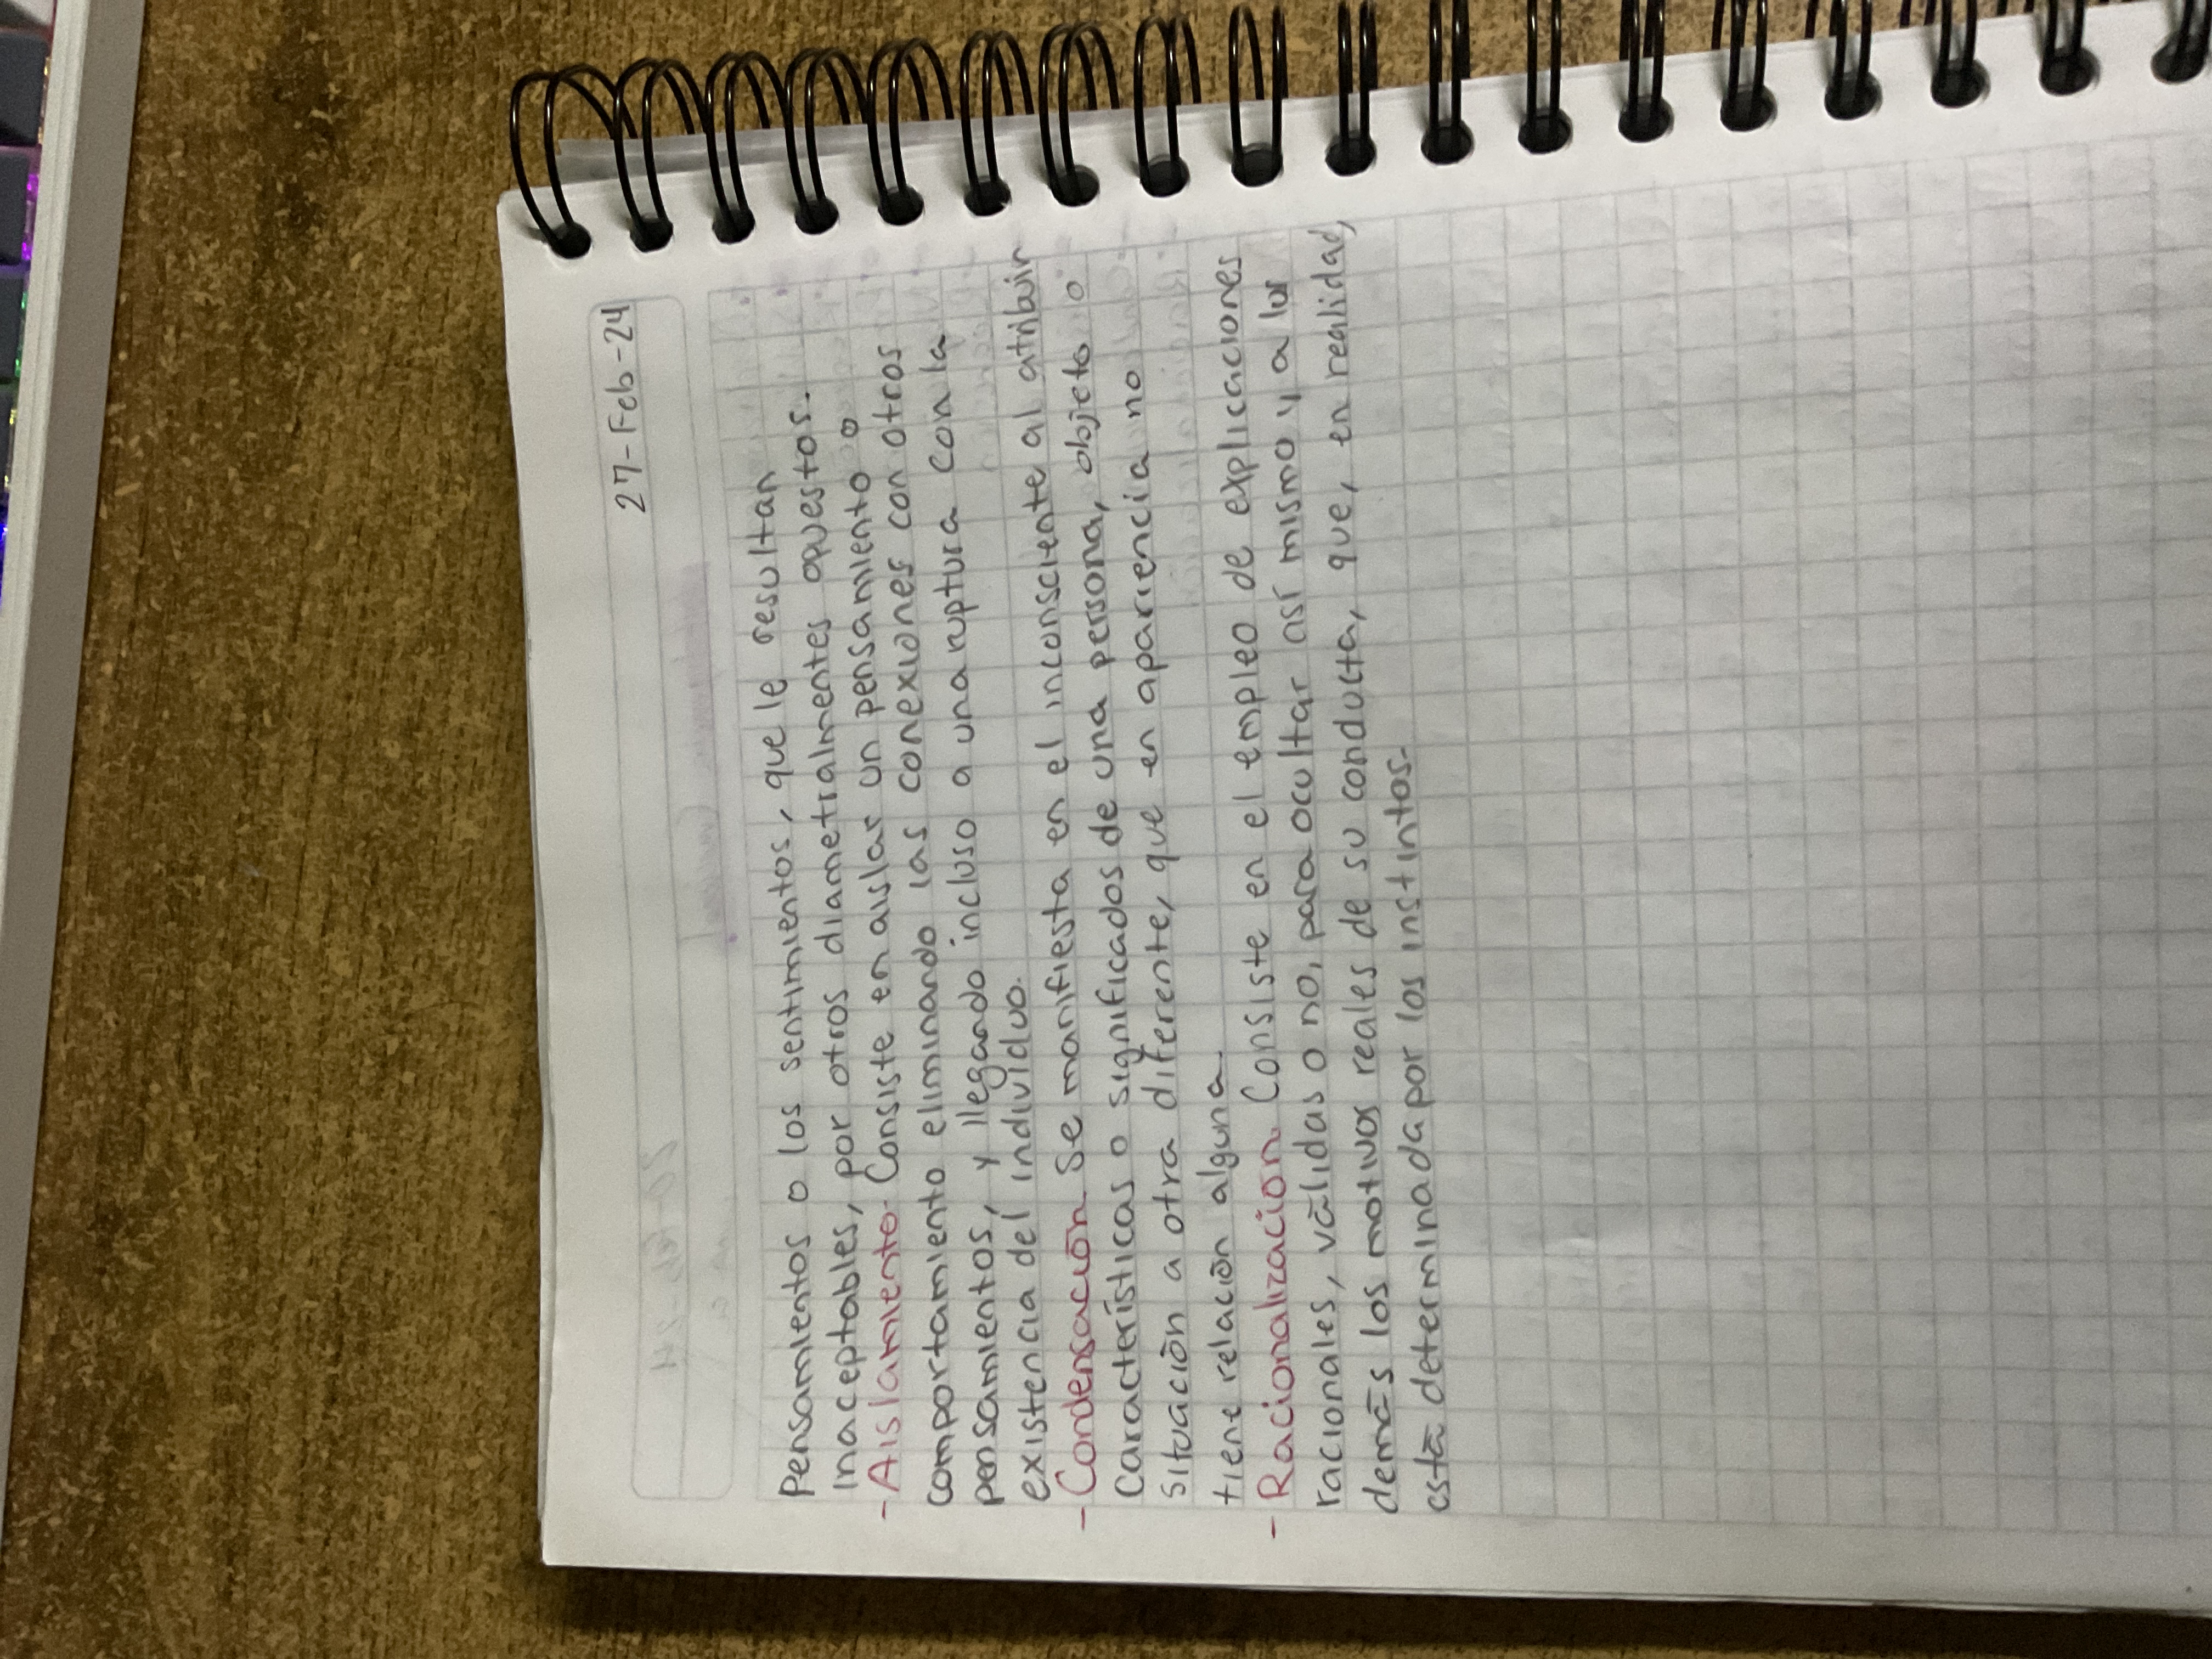 27-Feb-24
Pensamientos o los sentimientos, que le resultan
Inaceptables, por otros diametralmentes opuestos.
-Aislamiento. Consiste en aislar un pensamiento o
comportamiento eliminando las conexiones con otros
pensamientos, y llegando incluso a una ruptura con la
existencia del individuo.
-Condensación. Se manifiesta en el inconsciente al atribuir
Características o significados de una persona, objeto o
situación a otra diferente, que en apariencia no
tiene relación alguna.
-Racionalización. Consiste en el empleo de explicaciones
racionales, válidas o no, para ocultar así mismo y a los
demás los motivos reales de su conducta, que, en realidad,
está determinada por los instintos.